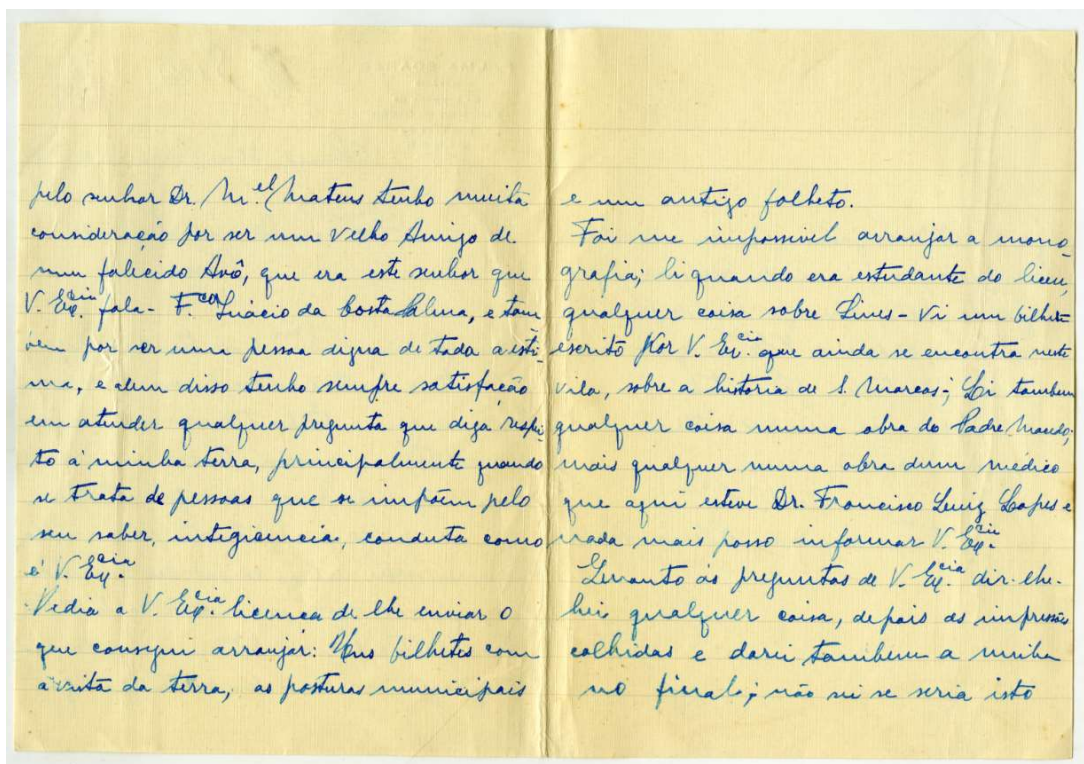 pelo senhor Dr. M.el Mateus tenho muita
consideração por ser um velho Amigo de
meu falecido Avô, que era este senhor que
V. Ex.cia fala - F.co Inácio da Costa Salema, e tam
bém por ser uma pessoa digna de toda a esti-
ma, e alem disso tenho sempre satisfação
em atender qualquer pregunta que diga respei-
to á minha terra, principalmente quando
se trata de pessoas que se impõem pelo
seu saber, conduta como
é V. Ex.cia
Pedia a V. Ex.cia licença de lhe enviar o
que consegui arranjar: Uns bilhetes com
a vista da terra, as posturas municipais
e um antigo folheto.
Foi me impossivel arranjar a mono-
grafia; li quando era estudante do liceu,
qualquer coisa sobre Sines - Vi um bilhete
escrito por V. Ex.cia que ainda se encontra nesta
vila, sobre a historia de S. Marcos; Li tambem
qualquer coisa numa obra do Padre Macedo;
mais qualquer numa obra dum médico
que aqui esteve Dr. Francisco Luiz Lopes e
nada mais posso informar V. Ex.cia
Quanto ás preguntas de V. Ex.cia dir-lhe-
hei qualquer coisa, depois as impressões
colhidas e darei tambem a minha
no final; não sei se seria isto